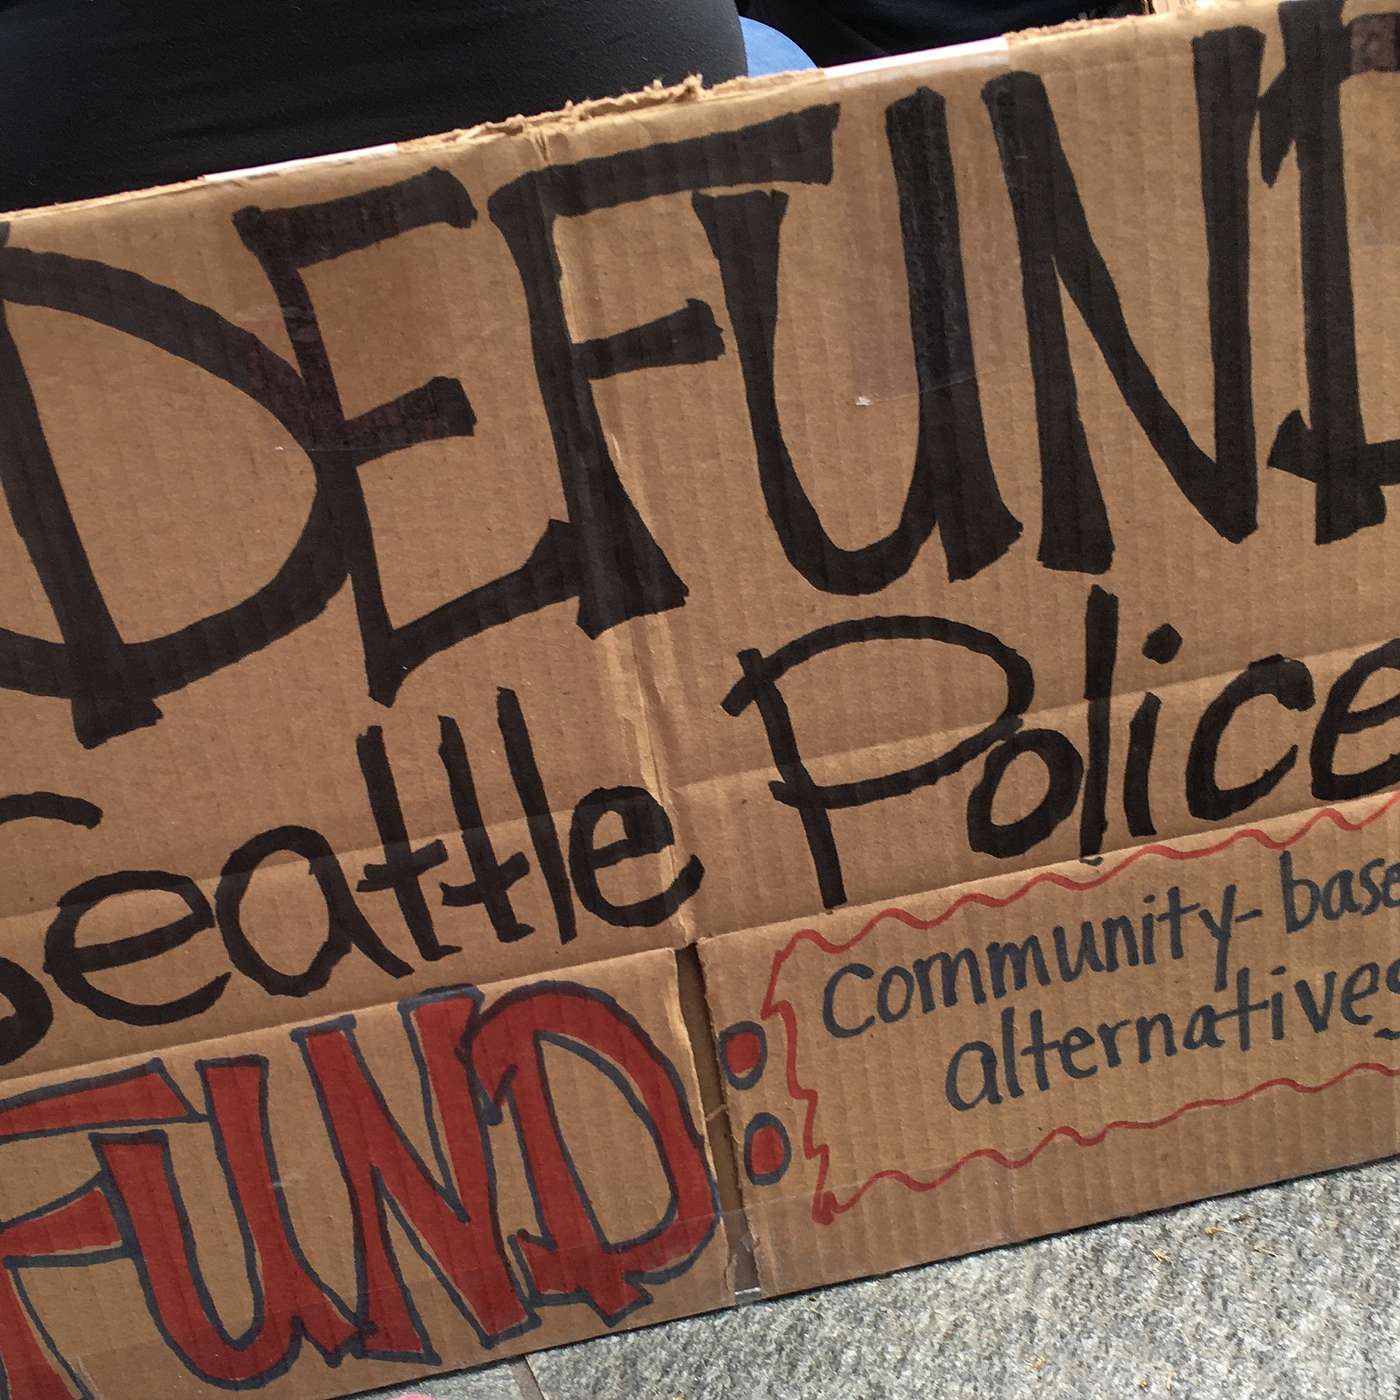 DEFUND
Seattle Police
FUND:
Community-based
alternatives